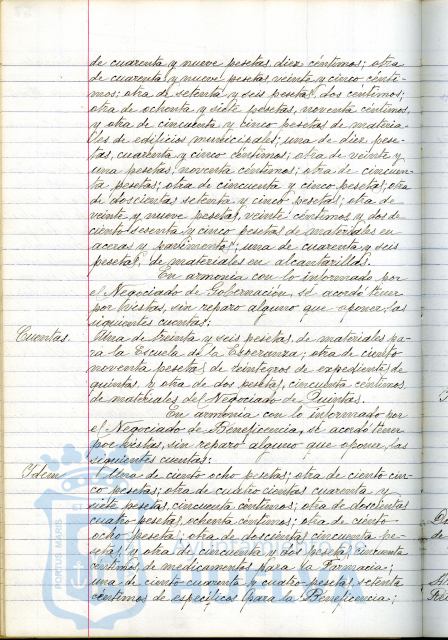 de cuarenta y nueve pesetas, diez céntimos; otra
de cuarenta y nueve pesetas, veinte y cinco cénti-
mos; otra de setenta y seis pesetas, dos céntimos;
otra de ochenta y siete pesetas, noventa céntimos,
y otra de cincuenta y cinco pesetas de materia-
les de edificios municipales; una de diez pese-
tas, cuarenta y cinco céntimos; otra de veinte y
una pesetas, noventa céntimos; otra de cincuen-
ta pesetas; otra de cincuenta y cinco pesetas; otra
de doscientas setenta y cinco pesetas; otra de
veinte y nueve pesetas, veinte céntimos y dos de
ciento sesenta y cinco pesetas de materiales en
aceras y pavimentos; una de cuarenta y seis
pesetas, de materiales en alcantarillas.
En armonia con lo informado por
el Negociado de Gobernación, se acordó tener
por vistas, sin reparo alguno que oponer, las
siguientes cuentas:
Cuentas. Una de treinta y seis pesetas, de materiales pa-
ra la Escuela de la Esperanza; otra de ciento
noventa pesetas de reintegros de expedientes de
quintas y otra de dos pesetas, cincuenta céntimos
de materiales del Negociado de Quintas.
En armonia con lo informado por
el Negociado de Beneficencia, se acordó tener
por vistas, sin reparo alguno que oponer, las
siguientes cuentas:
Idem. Una de ciento ocho pesetas; otra de ciento cin-
co pesetas; otra de cuatrocientas cuarenta y
siete pesetas, cincuenta céntimos; otra de doscientas
cuatro pesetas, ochenta céntimos; otra de ciento
ocho pesetas; otra de doscientas cincuenta pe-
setas, y otra de cincuenta y dos pesetas cincuenta
céntimos de medicamentos para la Farmacia;
una de ciento cuarenta y cuatro pesetas, setenta
céntimos de específicos para la Beneficencia;
PORTUS MARIS